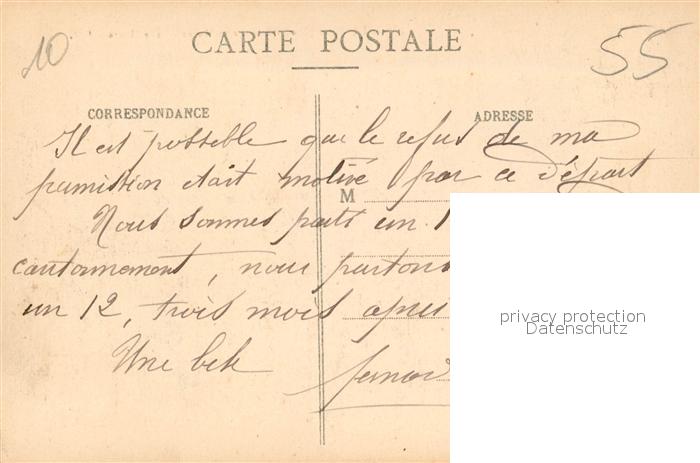 10
CARTE POSTALE
55
CORRESPONDANCE
ADRESSE
Il est possible que le refus de ma
permission était motivé par ce départ
M
Nous sommes partis un 1
cantonnement, nous partons
un 12, trois mois après
Une
privacy protection
Datenschutz